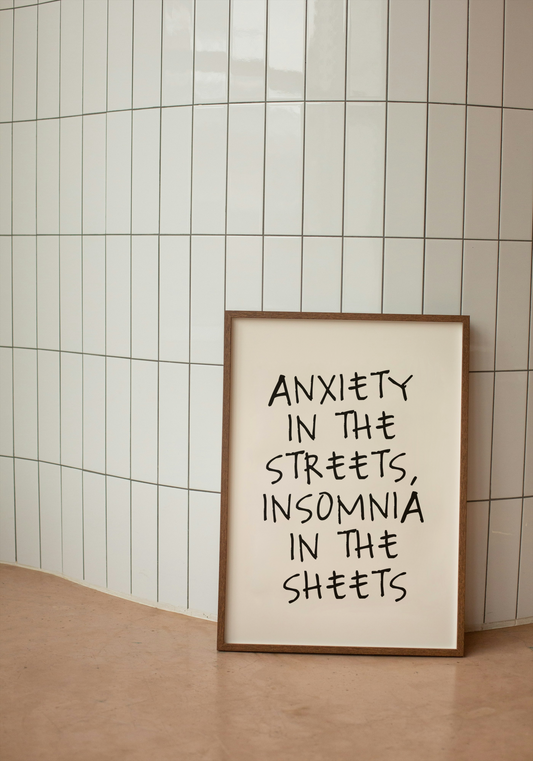 ANXIETY
IN THE
STREETS,
INSOMNIA
IN THE
SHEETS